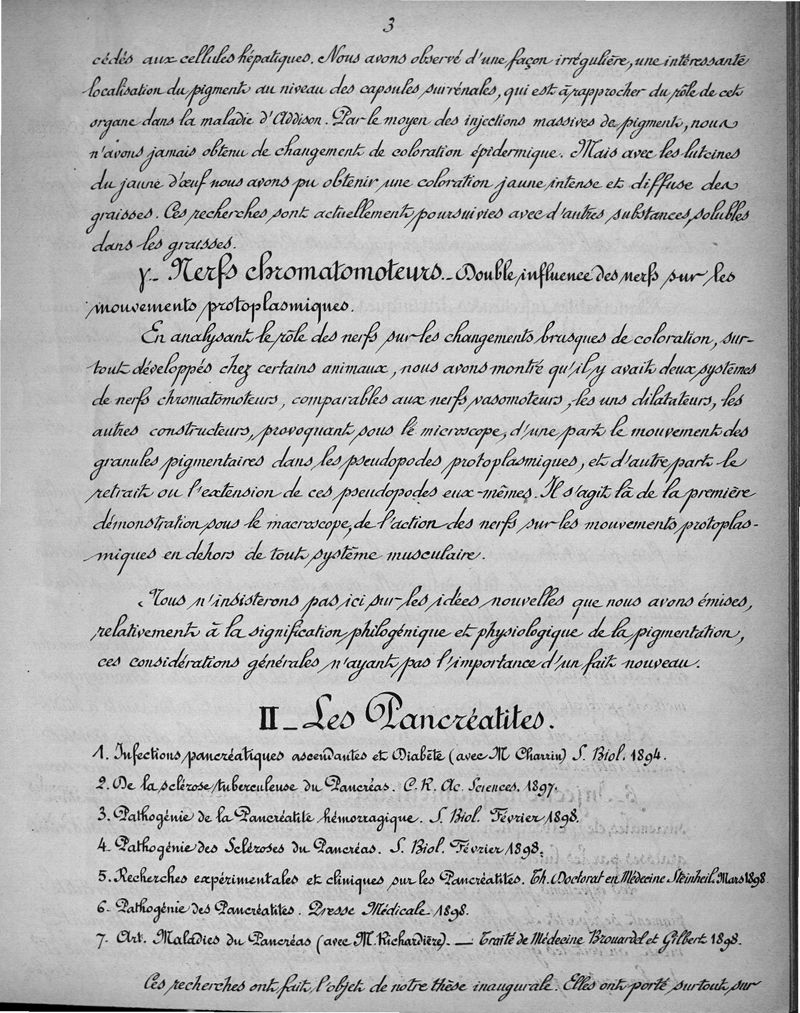 3
cédés aux cellules hépatiques. Nous avons observé d'une façon irrégulière, une intéressante
localisation du pigment au niveau des capsules surrénales, qui est à rapprocher du rôle de cet
organe dans la maladie d'Addison. Par le moyen des injections massives de pigment, nous
n'avons jamais obtenu de changement de coloration épidermique. Mais avec les lutéines
du jaune d'œuf nous avons pu obtenir une coloration jaune intense et diffuse des
graisses. Ces recherches sont actuellement poursuivies avec d'autres substances, solubles
dans les graisses.
γ._ Nerfs chromatomoteurs._ Double influence des nerfs sur les
mouvements protoplasmiques.
En analysant le rôle des nerfs sur les changements brusques de coloration, sur-
tout développés chez certains animaux, nous avons montré qu'il y avait deux systèmes
de nerfs chromatomoteurs, comparables aux nerfs vasomoteurs, les uns dilatateurs, les
autres constructeurs, provoquant sous le microscope, d'une part le mouvement des
granules pigmentaires dans les pseudopodes protoplasmiques, et d'autre part le
retrait ou l'extension de ces pseudopodes eux-mêmes. Il s'agit là de la première
démonstration sous le macroscope, de l'action des nerfs sur les mouvements protoplas-
miques en dehors de tout système musculaire.
Nous n'insisterons pas ici sur les idées nouvelles que nous avons émises,
relativement à la signification philogénique et physiologique de la pigmentation,
ces considérations générales n'ayant pas l'importance d'un fait nouveau.
II _ Les Pancréatites.
1. Infections pancréatiques ascendantes et Diabète (avec M Charrin) S. Biol. 1894.
2. De la sclérose tuberculeuse du Pancréas. C. R. Ac. Sciences. 1897.
3. Pathogénie de la Pancréatite hémorragique. S. Biol. Février 1898.
4. Pathogénie des Scléroses du Pancréas. S. Biol. Février 1898.
5. Recherches expérimentales et cliniques sur les Pancréatites. Th. Doctorat en Médecine Steinheil. Mars 1898.
6. Pathogénie des Pancréatites. Presse Médicale 1898.
7. Art. Maladies du Pancréas (avec M. Richardière). — Traité de Médecine Brouardel et Gilbert 1898.
Ces recherches ont fait l'objet de notre thèse inaugurale. Elles ont porté surtout sur